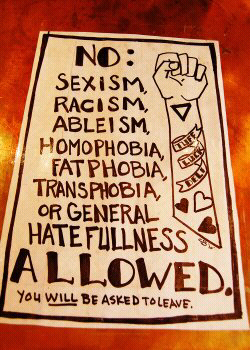 NO:
SEXISM,
RACISM,
ABLEISM,
HOMOPHOBIA,
FATPHOBIA,
TRANSPHOBIA,
OR GENERAL
HATEFULLNESS
ALLOWED.
YOU WILL BE ASKED TO LEAVE.